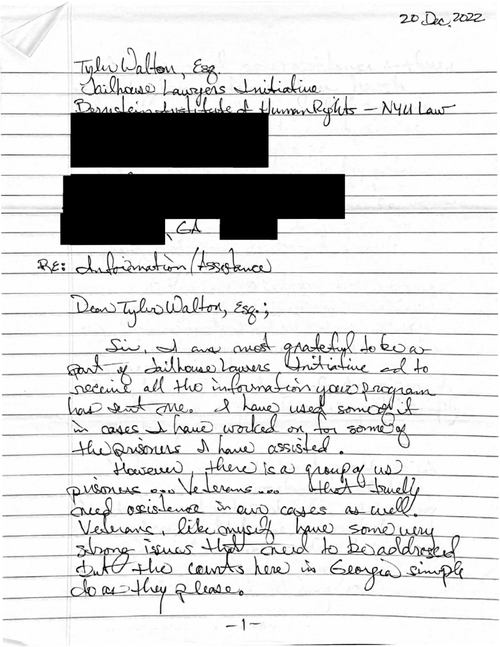 20 Dec. 2022
Tyler Walton, Esq.
Jailhouse Lawyers Initiative
Bernstein Institute of Human Rights – NYU Law
, GA
RE: Information/Assistance
Dear Tyler Walton, Esq.;
Sir, I am most grateful to be a
part of Jailhouse Lawyers Initiative and to
receive all the information your program
has sent me. I have used some of it
in cases I have worked on for some of
the prisoners I have assisted.
However, there is a group of us
prisoners... Veterans... that truely
need assistence in our cases as well.
Veterans, like myself have some very
strong issues that need to be addressed
but the courts here in Georgia simple
do as they please.
-1-